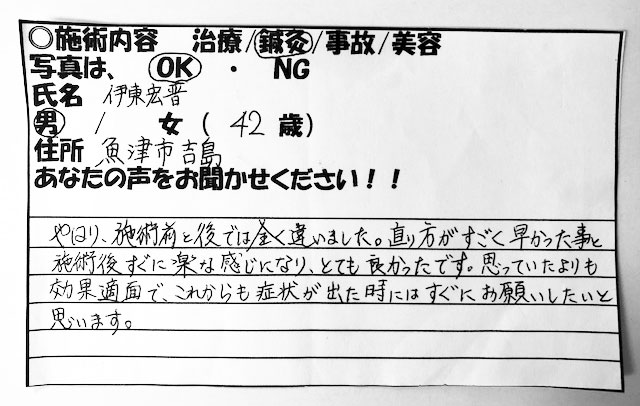 ○施術内容 治療/鍼灸/事故/美容
写真は、 OK ・ NG
氏名 伊東宏晋
男 / 女 ( 42 歳)
住所 魚津市吉島
あなたの声をお聞かせください!!
やはり、施術前と後では全く違いました。直り方がすごく早かった事と
施術後すぐに楽な感じになり、とても良かったです。思っていたよりも
効果適面で、これからも症状が出た時にはすぐにお願いしたいと
思います。